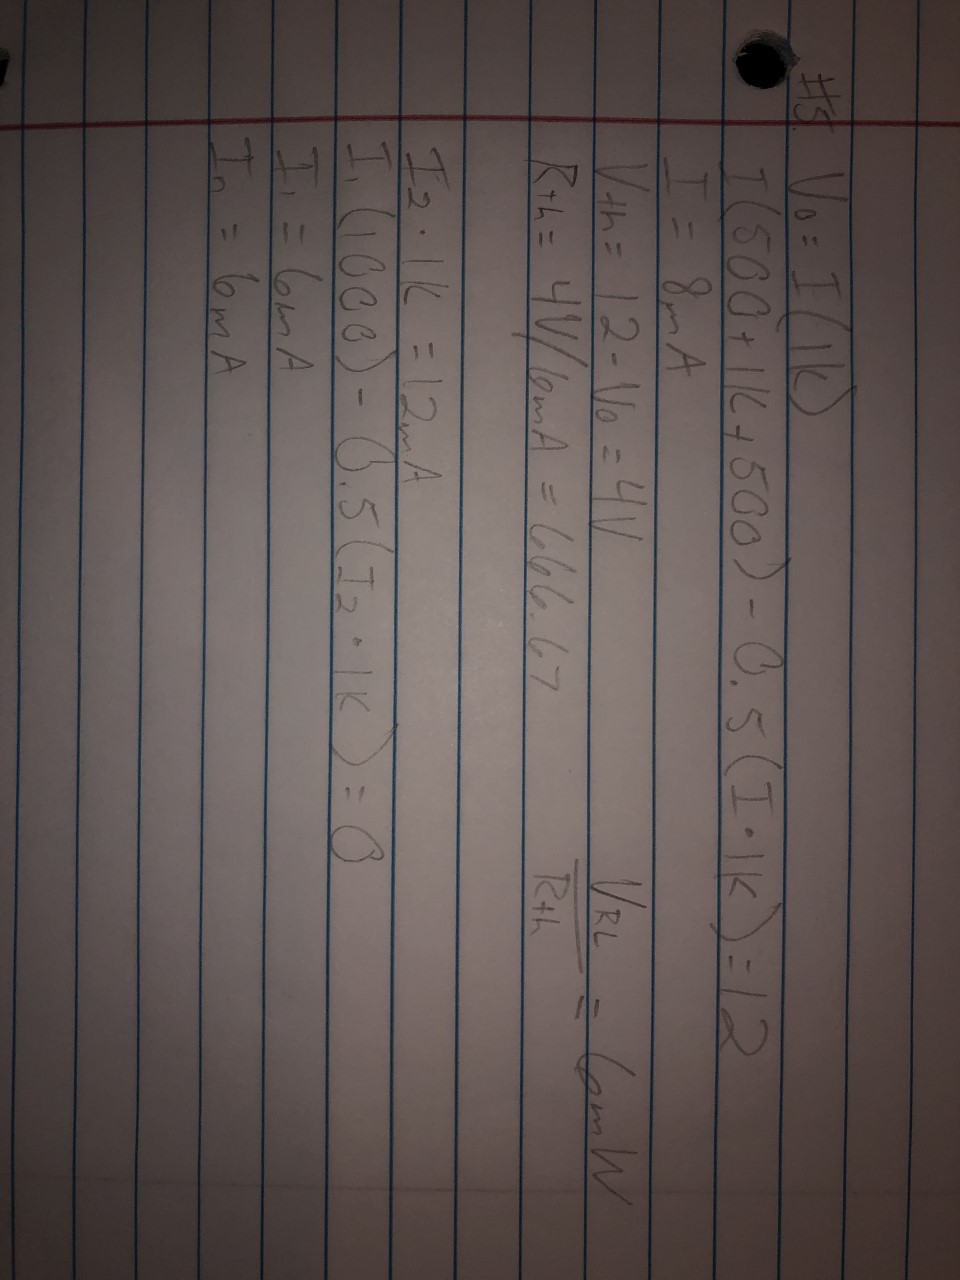 #5. V₀ = I(1k)
I(500 + 1k + 500) - 0.5(I·1k) = 12
I = 8mA
Vth = 12 - V₀ = 4V
Rth = 4V/6mA = 666.67
VRL / Rth = 6mW
I₂·1k = 12mA
I₁(1000) - 0.5(I₂·1k) = 0
I₁ = 6mA
In = 6mA